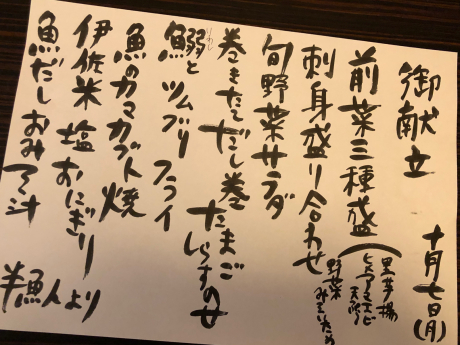 御献立
十月七日(月)
前菜三種盛
里芋揚
ヒメアマエビ
天ぷら
野菜
みそいため
刺身盛り合わせ
旬野菜サラダ
巻きたてだし巻たまご
しらすのせ
鰯とツムブリフライ
いわし
魚のカマカブト焼
伊佐米塩おにぎり
魚だしおみそ汁
半漁人より